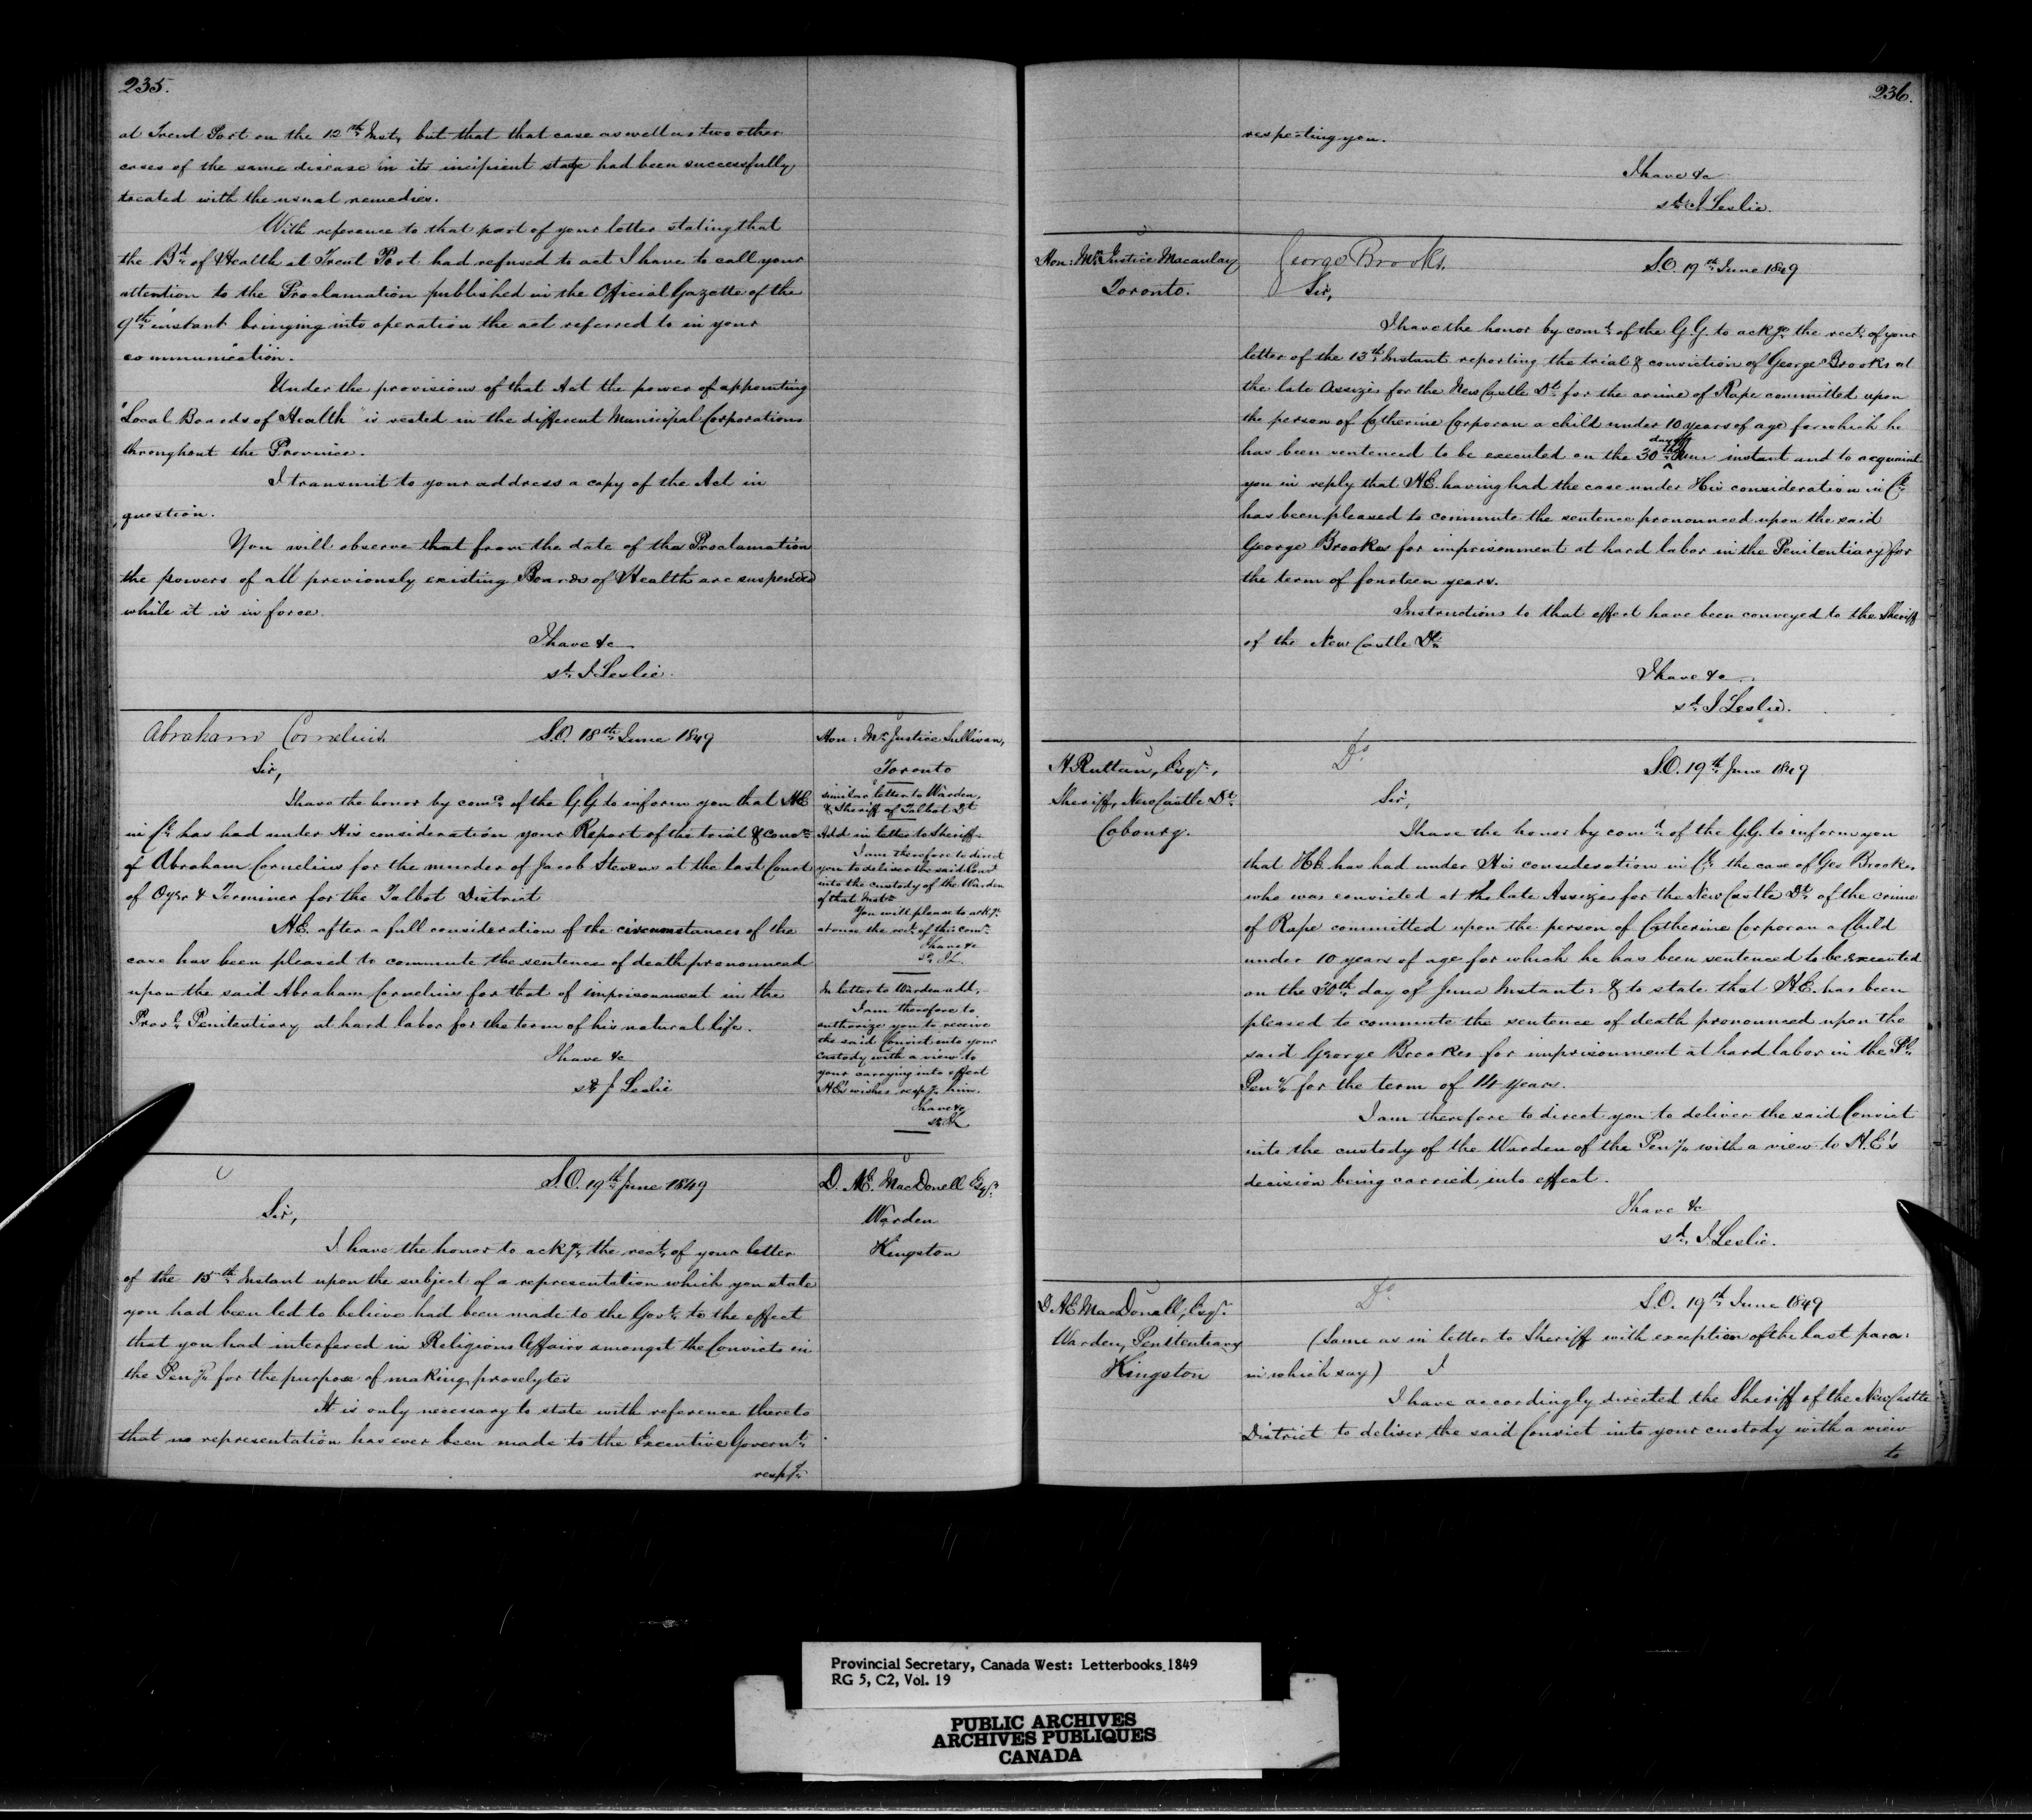 235.
at Trent Port on the 12th Inst, but that that case as well as two other
cases of the same disease in its incipient stage had been successfully
treated with the usual remedies.
With reference to that part of your letter stating that
the Bd of Health at Trent Port had refused to act I have to call your
attention to the Proclamation published in the Official Gazette of the
9th instant bringing into operation the act referred to in your
communication.
Under the provisions of that Act the power of appointing
"Local Boards of Health" is vested in the different Municipal Corporations
throughout the Province.
I transmit to your address a copy of the Act in
question.
You will observe that from the date of the Proclamation
the powers of all previously existing Boards of Health are suspended
while it is in force.
I have &c
sd. J. Leslie.
Abraham Cornelius.
S.O. 18th June 1849
Sir,
I have the honor by comd. of the G.G. to inform you that HE
in Cl. has had under His consideration your Report of the trial & convn.
of Abraham Cornelius for the murder of Jacob Stevens at the last Court
of Oyer & Terminer for the Talbot District
H.E. after a full consideration of the circumstances of the
case has been pleased to commute the sentence of death pronounced
upon the said Abraham Cornelius for that of imprisonment in the
Provl. Penitentiary at hard labor for the term of his natural life.
I have &c
sd J Leslie
Hon: Mr. Justice Sullivan,
Toronto
similar letter to Warden,
& Sheriff of Talbot Dt
Add in letter to Sheriff.
I am therefore to direct
you to deliver the said Convt
into the custody of the Warden
of that Instn
You will please to ackge.
at once the rect. of this comn.
I have &c
sd. J.L.
In letter to Warden add,
I am therefore to
authorize you to receive
the said Convict into your
custody with a view to
your carrying into effect
H.E's wishes respg. him.
I have &c
sd. JL
S.O. 19th June 1849
Sir,
I have the honor to ackge. the rect. of your letter
of the 15th Instant upon the subject of a representation which you state
you had been led to believe had been made to the Govt. to the effect
that you had interfered in Religious Affairs amongst the Convicts in
the Peny. for the purpose of making proselytes
It is only necessary to state with reference thereto
that no representation has ever been made to the Executive Governt.
respg.
D. Æ. MacDonell Esqr.
Warden
Kingston
236.
respecting you.
I have &c
sd. J Leslie.
Hon: Mr. Justice Macaulay
Toronto.
George Brooks.
S.O. 19th June 1849
Sir,
I have the honor by comd. of the G.G. to ackge. the rect. of your
letter of the 13th Instant reporting the trial & conviction of George Brooks at
the late Assizes for the New Castle Dt. for the crime of Rape committed upon
the person of Catherine Corporan a child under 10 years of age for which he
day of
has been sentenced to be executed on the 30th June instant and to acquaint
you in reply that H.E. having had the case under His consideration in Cl.
has been pleased to commute the sentence pronounced upon the said
George Brookes for imprisonment at hard labor in the Penitentiary for
the term of fourteen years.
Instructions to that effect have been conveyed to the Sheriff
of the New Castle Dt.
I have &c
sd. J Leslie.
H Ruttan, Esqr.,
Sheriff, New Castle Dt.
Cobourg.
Do
S.O. 19th June 1849
Sir,
I have the honor by comd. of the G.G. to inform you
that H.E. has had under His consideration in Cl. the case of Geo Brooks.
who was convicted at the late Assizes for the New Castle Dt. of the crime
of Rape committed upon the person of Catherine Corporan a Child
under 10 years of age for which he has been sentenced to be executed
on the 30th day of June Instant: & to state that H.E. has been
pleased to commute the sentence of death pronounced upon the
said George Brookes for imprisonment at hard labor in the Pl.
Peny for the term of 14 years.
I am therefore to direct you to deliver the said Convict
into the custody of the Warden of the Peny. with a view to H.E's
decision being carried into effect.
I have &c
sd. J. Leslie.
D. Æ MacDonell, Esqr.
Warden, Penitentiary
Kingston
Do
S.O. 19th June 1849
(Same as in letter to Sheriff with exception of the last para:
in which say) I
I have accordingly directed the Sheriff of the New Castle
District to deliver the said Convict into your custody with a view
to
Provincial Secretary, Canada West: Letterbooks 1849
RG 5, C2, Vol. 19
PUBLIC ARCHIVES
ARCHIVES PUBLIQUES
CANADA